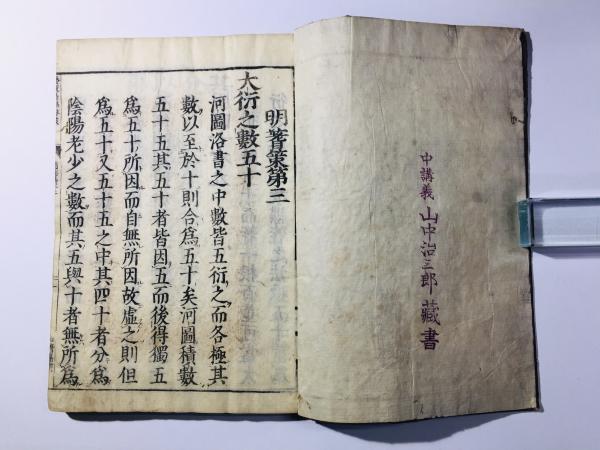 中講義 山中治三郎 藏書
明蓍策第三
大衍之數五十
河圖洛書之中數皆五衍之而各極其
數以至於十則合爲五十矣河圖積數
五十五其五十者皆因五而後得獨五
爲五十所因而自無所因故虛之則但
爲五十又五十五之中其四十者分爲
陰陽老少之數而其五與十者無所爲